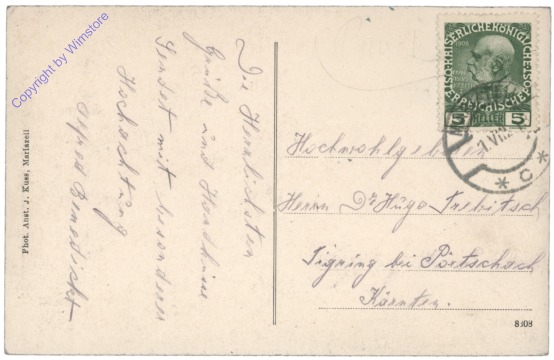 Copyright by Wimstore
Die Herzlichsten
Grüße und Handküsse
Sendet mit besonderer
Hochachtung
Alfred Benedickt.
Phot. Anst. J. Kuss, Mariazell
KAISERLICHE KÖNIGLICHE
ÖSTERREICHISCHE
5 HELLER 5
Hochwohlgeboren
Herrn Dr Hugo Trebitsch
Tigring bei Pörtschach
Kärnten.
* C *
8308